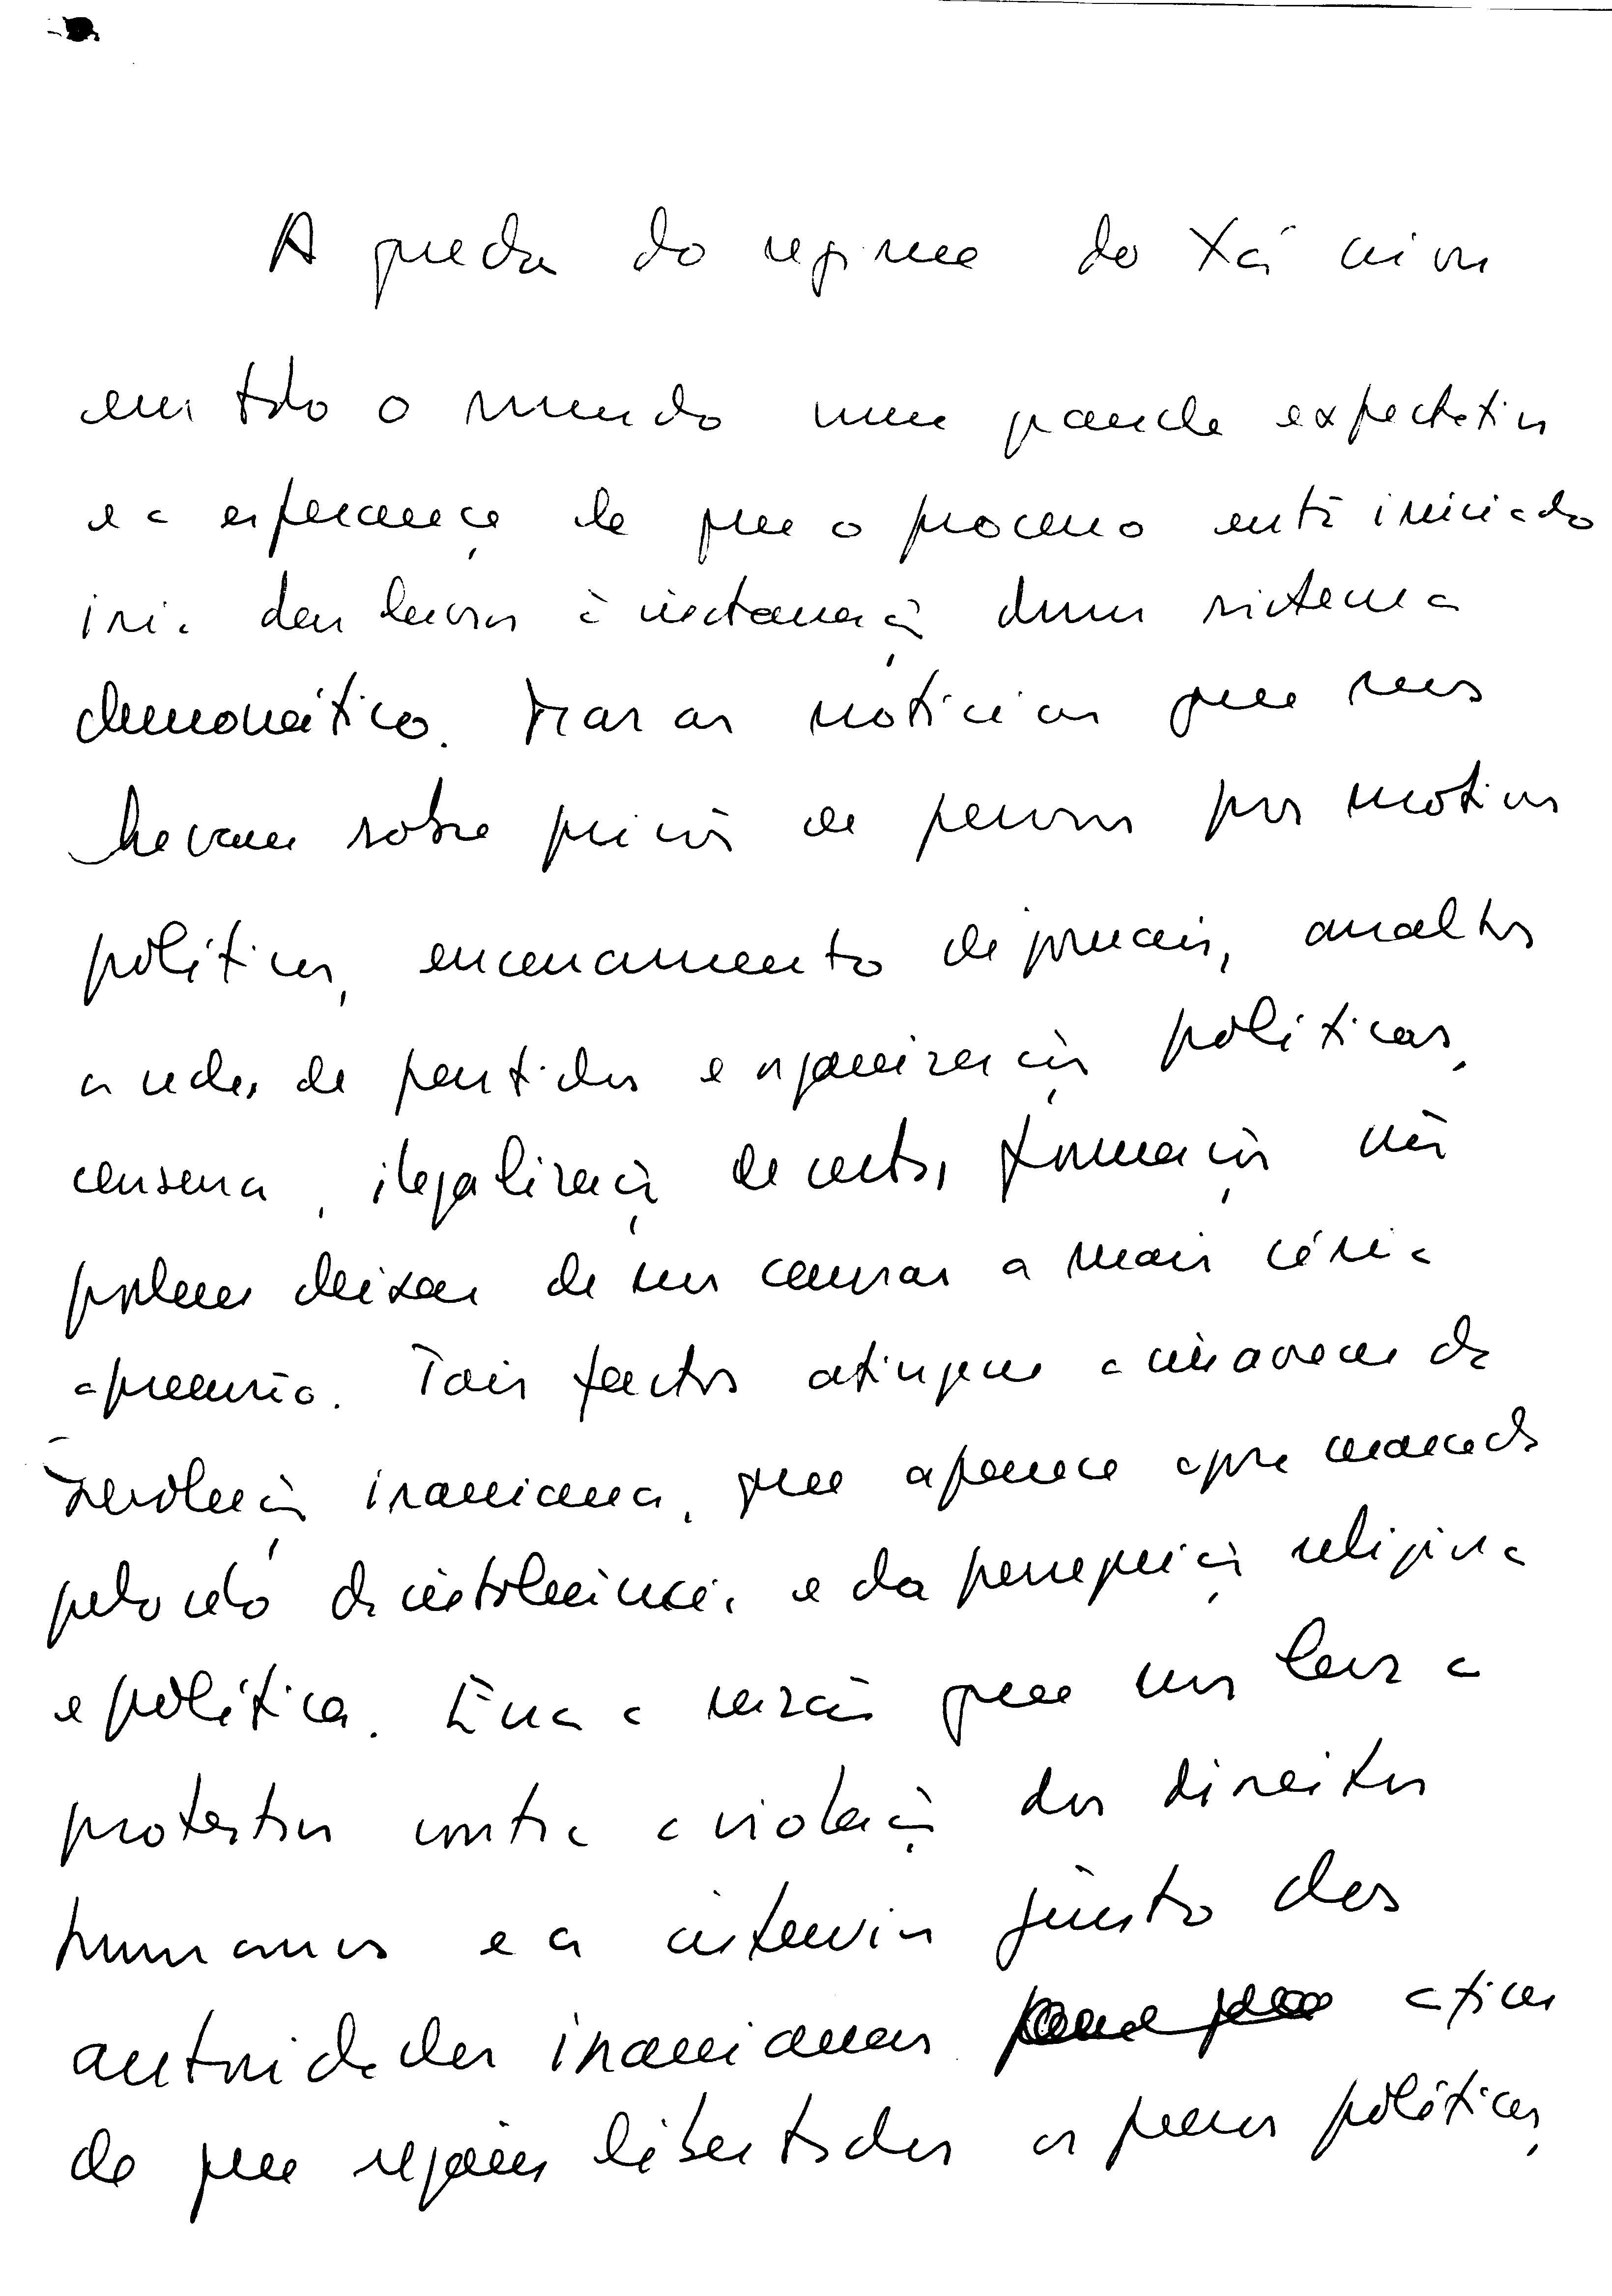 A queda do regime do Xá criou
em todo o mundo uma grande expectativa
e a esperança de que o processo então iniciado
iria desembocar à instauração dum sistema
democrático. Mas as notícias que nos
chegam sobre prisão de pessoas por motivos
políticos, encerramento de jornais, assaltos
a sedes de partidos e organizações políticas,
censura, ilegalização de certas formações não
podem deixar de nos causar a mais séria
apreensão. Tais factos atingem a imagem da
revolução iraniana, que aparece agora manchada
pelo selo da intolerância e da perseguição religiosa
e política. Essa a razão que nos leva a
protestar contra a violação dos direitos
humanos e a intervir junto das
autoridades iranianas a fim
de que sejam libertados os presos políticos,